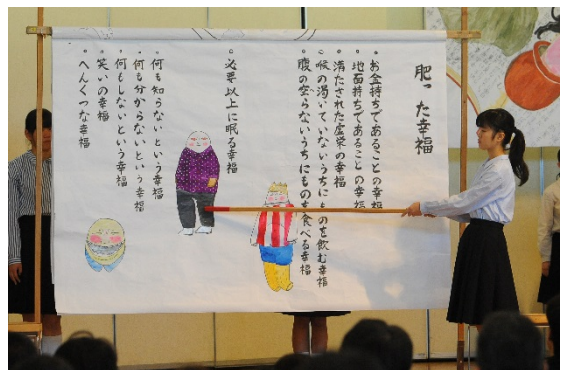 肥った幸福
・お金持ちであることの幸福
・地面持ちであることの幸福
・満たされた虚栄の幸福
・喉の渇いていないうちにものを飲む幸福
・腹の空らないうちにものを食べる幸福
・必要以上に眠る幸福
・何も知らないという幸福
・何も分からないという幸福
・何もしないという幸福
・笑いの幸福
・へんくつな幸福